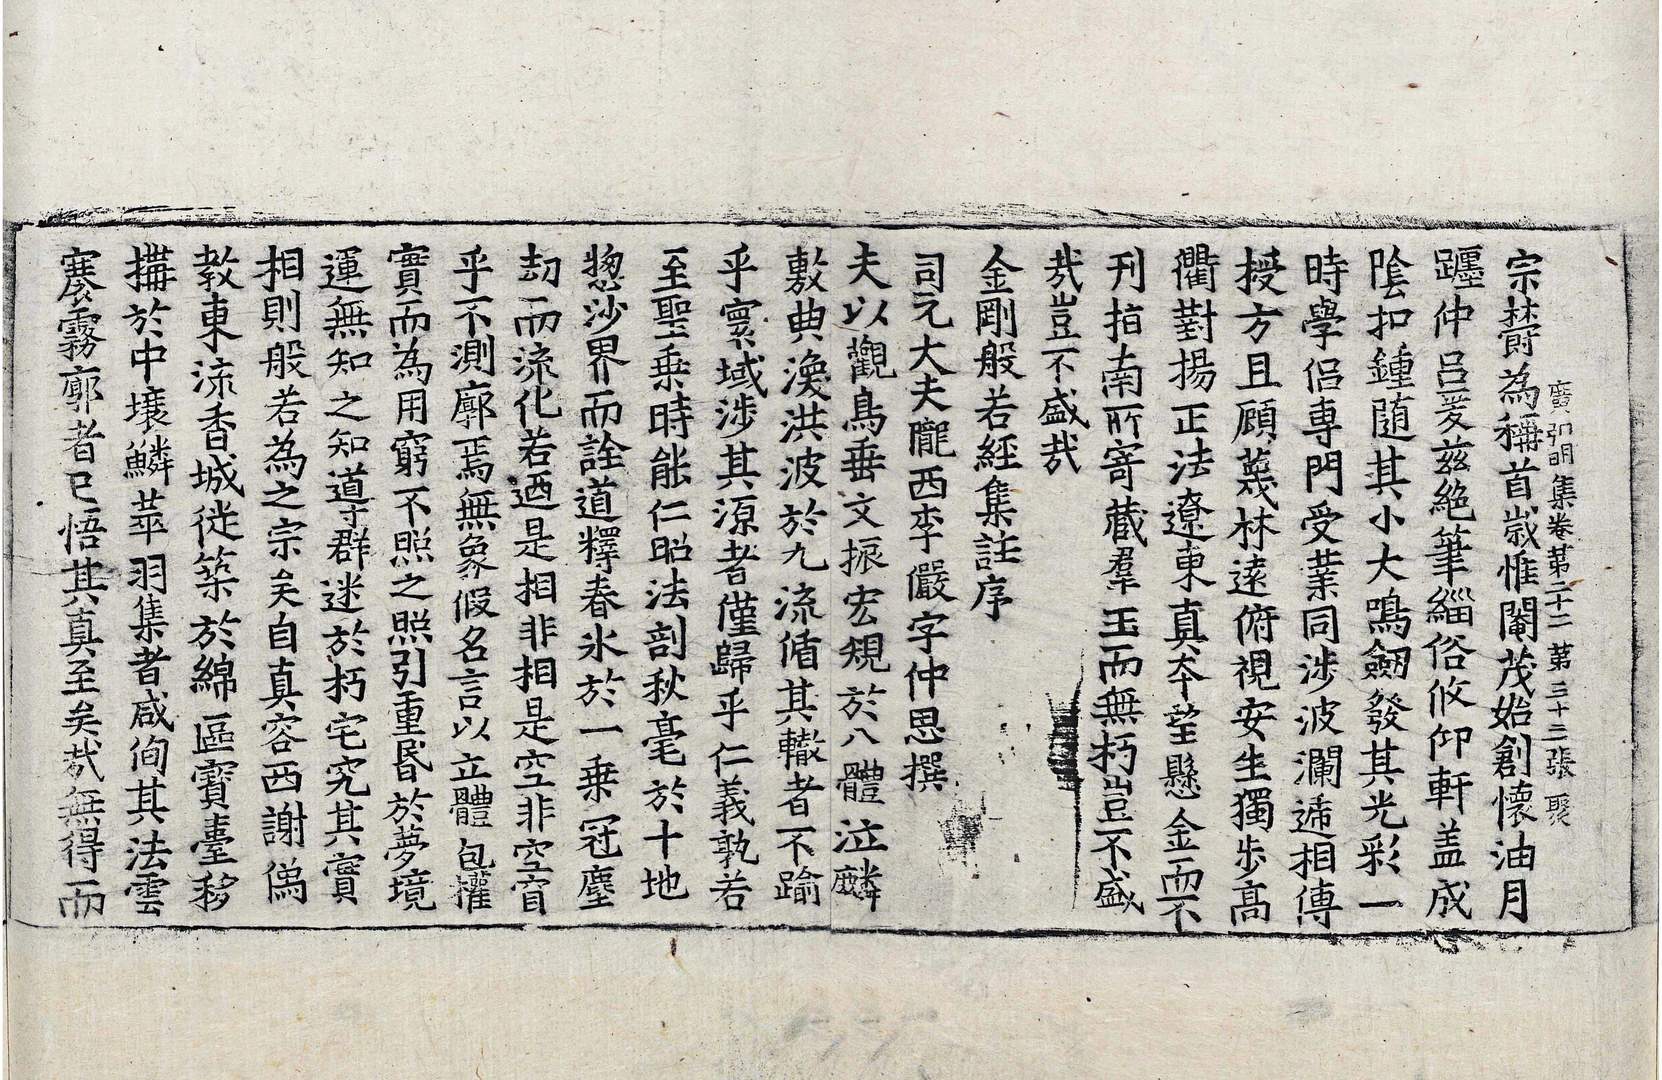 廣弘明集卷第二十二 第三十三張 聚
宗欝為稱首歲惟閹茂始創懷油月
躔仲呂爰茲絕筆緇俗攸仰軒盖成
陰扣鍾随其小大鳴劒發其光彩一
時學侶專門受業同涉波瀾遞相傳
授方且顧蔑林遠俯視安生獨步高
衢對揚正法遼東真本望懸金而不
刊指南所寄藏羣玉而無朽豈不盛
哉豈不盛哉
金剛般若經集註序
司元大夫隴西李儼字仲思撰
夫以觀鳥垂文振宏規於八體泣麟
敷典漁洪波於九流循其轍者不踰
乎寰域涉其源者僅歸乎仁義孰若
至聖乗時能仁昭法剖秋毫於十地
惣沙界而詮道釋春氷於一乗冠塵
劫而流化若迺是相非相是空非空賔
乎不測廓焉無象假名言以立體包權
實而為用窮不照之照引重昏於夢境
運無知之知導群迷於朽宅究其實
相則般若為之宗矣自真容西謝僞
教東流香城徙築於綿區寳臺移
搆於中壤鱗萃羽集者咸佝其法雲
褰霧廓者已悟其真至矣哉無得而